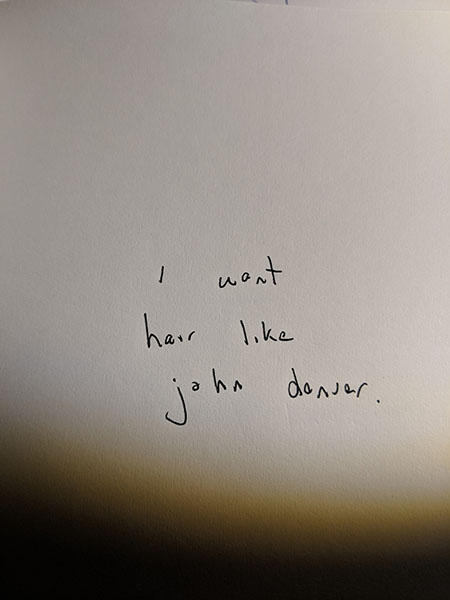 i want
hair like
john denver.